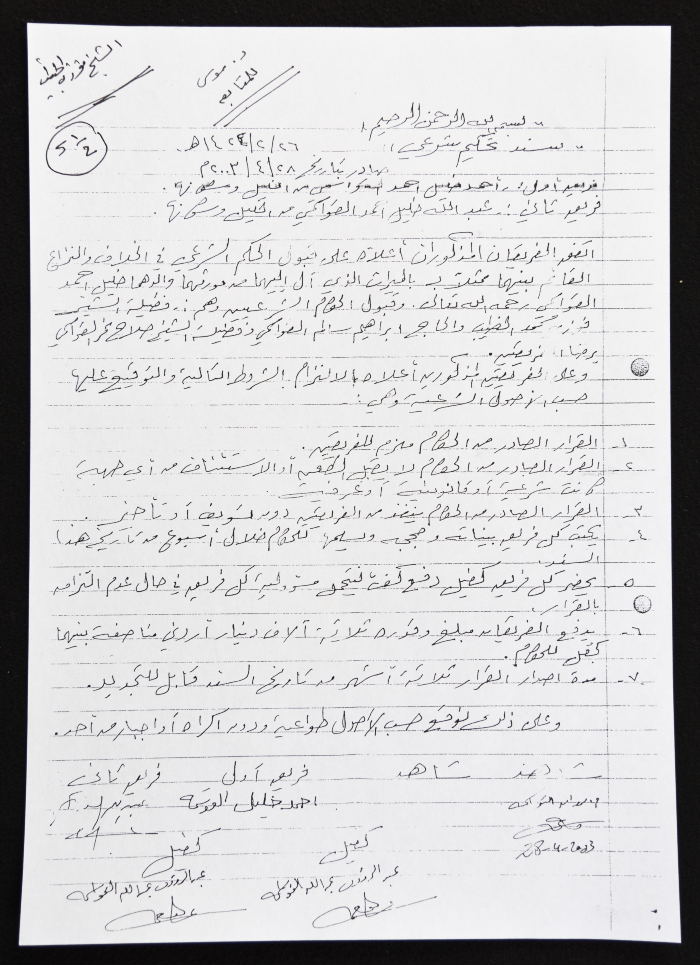 بسم الله الرحمن الرحيم
سند تحكيم شرعي
١٤٢٤/٢/٢٦هـ
صادر بتاريخ ٢٠٠٣/٤/٢٨م
فريق أول: أحمد خليل أحمد من الخليل وسكانها.
فريق ثاني: عبد الله خليل أحمد القواسمي من الخليل وسكانها.
اتفق الفريقان المذكوران أعلاه على قبول الحكم الشرعي في الخلاف والنزاع
القائم بينهما ممثلاً بـ بالميراث الذي آل إليهما من مورثهما والدهما خليل أحمد
القواسمي رحمه الله تعالى. وقبول الحكام الشرعيين وهم: فضيلة الشيخ
محمد الخطيب والحاج ابراهيم سالم القواسمي وفضيلة الشيخ صلاح القواسمي
برضا الفريقين.
وعلى الفريقين المذكورين أعلاه الالتزام بالشروط التالية والتوقيع عليها
حسب الأصول الشرعية وهي:
١- القرار الصادر من الحكام ملزم للفريقين.
٢- القرار الصادر من الحكام لا يقبل الطعن أو الاستئناف من أي جهة
كانت شرعية أو قانونية أو عرفية.
٣- القرار الصادر من الحكام ينفذ من الفريقين دون تسويف أو تأخير.
٤- يكتب كل فريق بيناته وحججه ويسلمها للحكام خلال أسبوع من تاريخ هذا
السند.
٥- يحضر كل فريق كفيل دفع ليتحمل مسؤولية كل فريق في حال عدم التزامه
بالقرار.
٦- يدفع الفريقان مبلغ وقدره ثلاثة آلاف دينار أردني مناصفة بينهما
للحكام.
٧- مدة اصدار القرار ثلاثة أشهر من تاريخ السند قابل للتجديد.
وعلى ذلك نوقع حسب الأصول طواعية ودون اكراه أو اجبار من أحد.
شاهد شاهد فريق أول فريق ثاني
احمد خليل القواسمة
28-4-2003
كفيل كفيل